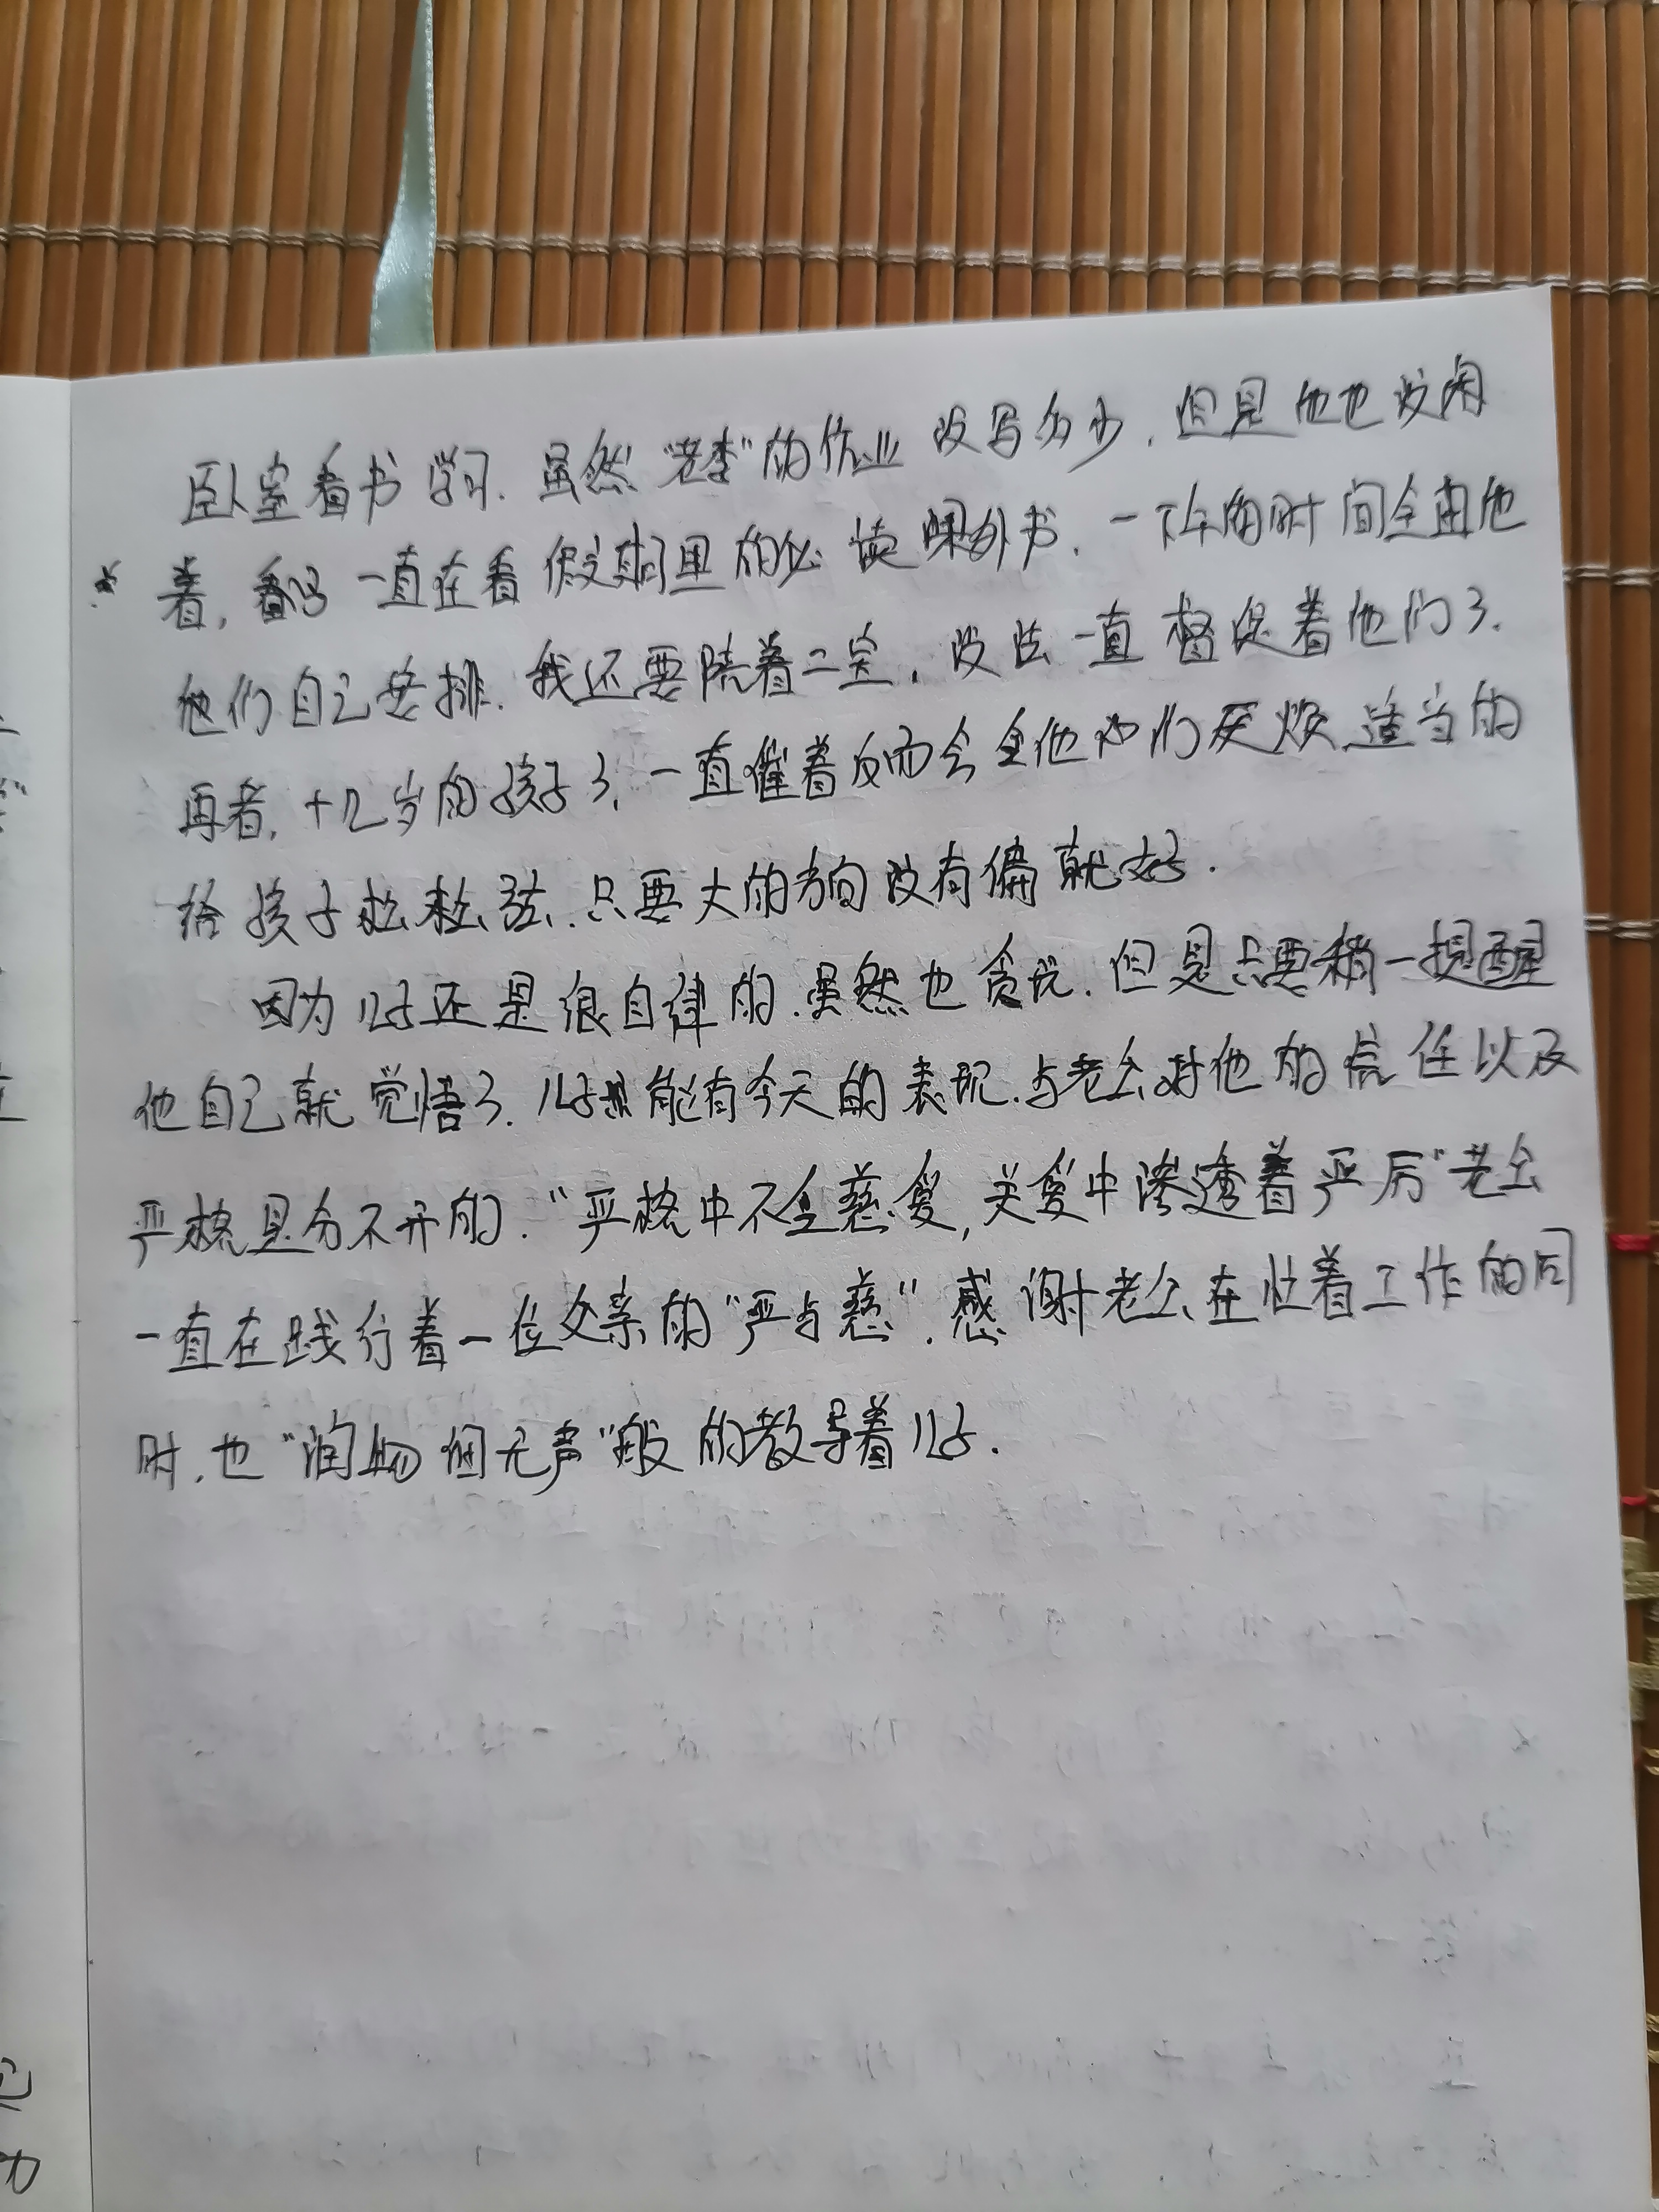 卧室看书学习.虽然"老李"的作业没写多少,但是他也没闲
着,一直在看假期里的必读课外书.一下午的时间全由他
他们自己安排.我还要陪着二宝,没法一直督促着他们了.
再者,十几岁的孩子了,一直催着反而会令他们厌烦.适当的
给孩子松松弦.只要大的方向没有偏就好.
因为儿子还是很自律的.虽然也贪玩.但是只要稍一提醒
他自己就觉悟了.儿子能有今天的表现.与老公对他的信任以及
严格是分不开的."严格中不全慈爱,关爱中渗透着严厉"老公
一直在践行着一位父亲的"严与慈".感谢老公在忙着工作的同
时.也"润物细无声"般的教导着儿子.